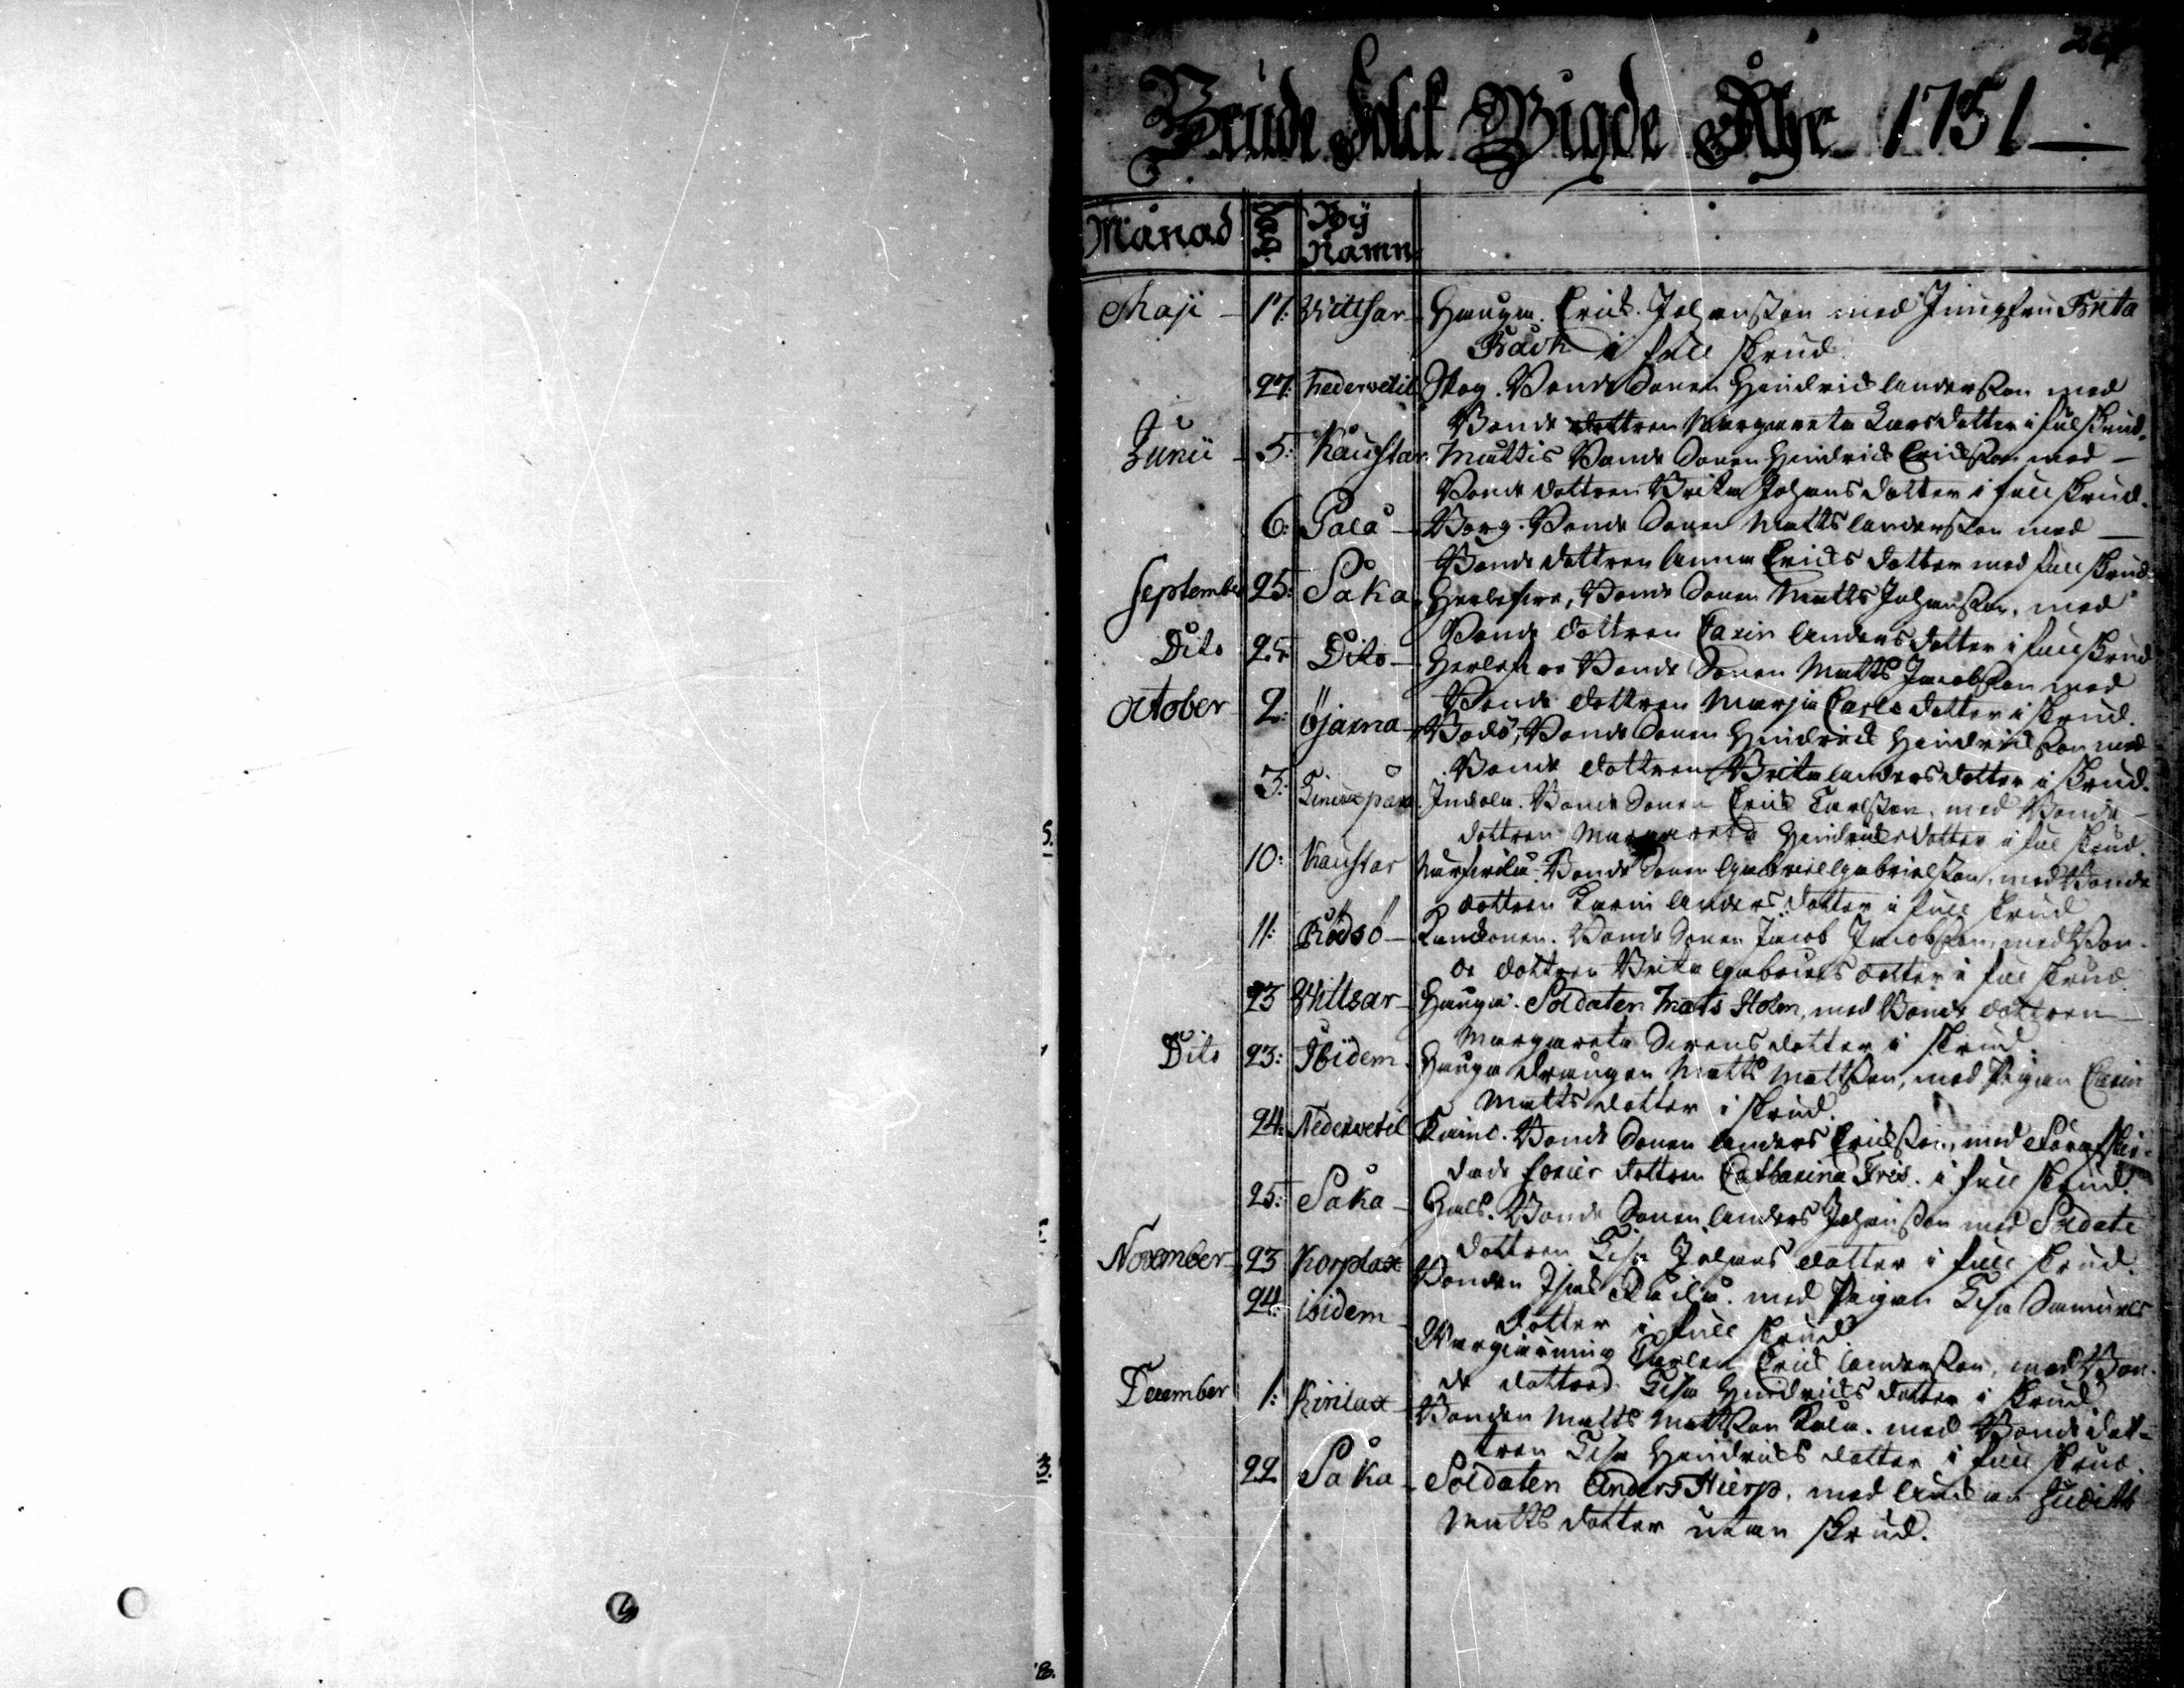 Brude Folck Wigde Åhr 1751
Månad Dag By Namn
Maji 17: Wittsar Hauga. Erick Johansson med Jungfru Brita
Back i full skrud.
27: Nedervetil Skog. Bonde Sonen Hindrick Andersson med
Bonde dottren Margareta Larsdotter i full skrud.
Junii 5: Kaustar Mattis Bonde Sonen Hindrick Ericksson med
Bonde dottren Brita Johansdotter i full skrud.
6: Palå Borg. Bonde Sonen Matts Andersson med
Bonde dottren Anna Ericksdotter med full skrud.
September 25: Såka Bonde Sonen Matts Johansson, med
Bonde dottren Carin Andersdotter i full skrud
Dito 25: Dito Bonde Sonen Matts Jacobsson med
Bonde dottren Marja Carlsdotter i skrud.
October 2: Öjarna Bodö, Bonde Sonen Hindrick Hindricksson med
Bonde dottren Brita Andersdotter i skrud.
3: Indola. Bonde Sonen Erick Carlsson, med Bonde
dottren Margareta Hindricksdotter i full skrud.
10: Kaustar Bonde Sonen Gabriel Gabrielsson, med Bonde
dottren Karin Andersdotter i full skrud
11: Rödsö Bonde Sonen Jacob Jacobsson, med Bon-
de dottren Brita Gabrielsdotter i full skrud.
23 Wittsar Hauga. Soldaten Mats Holm, med Bonde dottren
Margareta Sirensdotter i skrud.
Dito 23: Ibidem. Hauga drängen Matts Mattsson, med Pigan Carin
Mattsdotter i skrud.
24. Nedervetil Bonde Sonen Anders Ericksson, med
dottren Catharina Fris. i full skrud.
25: Såka Hals. Bonde Sonen Anders Johansson med Soldate
dottren Lisa Johansdotter i full skrud.
November 23 Korplax Bonden med Pigan Lisa Samuels
dotter i full skrud
24: ibidem Erick Andersson, med Bon-
de dottren Lisa Hindricksdotter i skrud
December 1: Kirilax Bonden Matts Mattsson med Bonde dot-
tren Lisa Hindricksdotter i full skrud.
22 Såka Soldaten Anders Hierp, med Judith
Mattsdotter utan skrud.